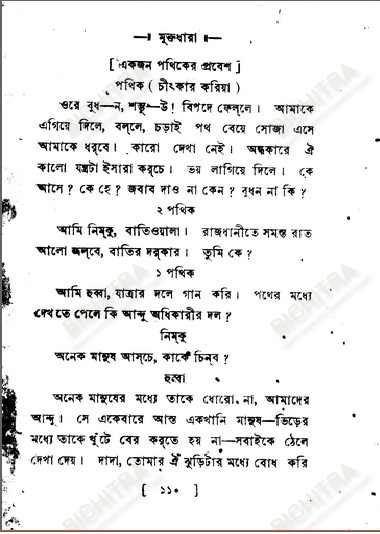 —॥ মুক্তধারা ॥—
[ একজন পথিকের প্রবেশ ]
পথিক ( চীৎকার করিয়া )
ওরে বুধ—ন, শম্ভু—উ! বিপদে ফেল্‌লে। আমাকে
এগিয়ে দিলে, বল্‌লে, চড়াই পথ বেয়ে সোজা এসে
আমাকে ধর্‌বে। কারো দেখা নেই। অন্ধকারে ঐ
কালো যন্ত্রটা ইসারা কর্‌চে। ভয় লাগিয়ে দিলে। কে
আসে? কে হে? জবাব দাও না কেন? বুধন না কি?
২ পথিক
আমি নিম্‌কু, বাতিওয়ালা। রাজধানীতে সমস্ত রাত
আলো জ্বল্‌বে, বাতির দরকার। তুমি কে?
১ পথিক
আমি হুব্বা, যাত্রার দলে গান করি। পথের মধ্যে
দেখ্‌তে পেলে কি আন্দু অধিকারীর দল?
নিম্‌কু
অনেক মানুষ আস্‌চে, কাকে চিন্‌ব?
হুব্বা
অনেক মানুষের মধ্যে তাকে ধোরো না, আমাদের
আন্দু। সে একেবারে আস্ত একখানি মানুষ—ভিড়ের
মধ্যে তাকে খুঁটে বের কর্‌তে হয় না—সবাইকে ঠেলে
দেখা দেয়। দাদা, তোমার ঐ ঝুড়িটার মধ্যে বোধ করি
[ ১১০ ]
BICHITRA